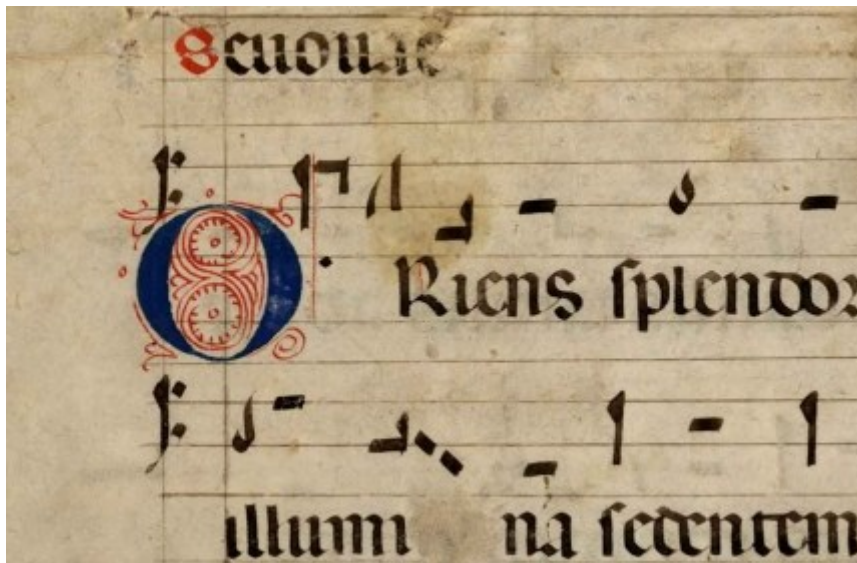 Seuouae
ORiens ſplendor
illumi na ſedentem